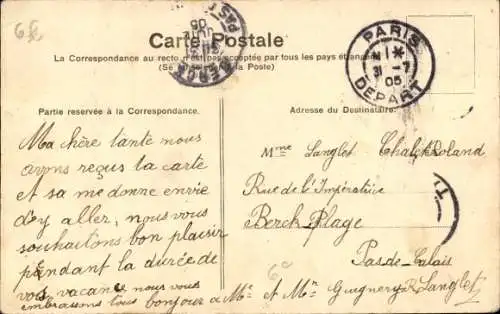 6e
Carte Postale
La Correspondance au recto n'est pas acceptée par tous les pays étrangers
(Se à la Poste)
BERCK
05
PARIS
31 - 7
05
DEPART
Partie reservée à la Correspondance.
Adresse du Destinataire.
Ma chère tante nous
avons reçus la carte
et sa me donne envie
d'y aller, nous vous
souhaitons bon plaisir
pendant la durée de
vos vacance nous vous
embrassons tous bonjour a Mr et Mme Guignery R Langlet
Mme Langlet Chalet Roland
Rue de l'Impératrice
Berck-Plage
Pas-de-Calais